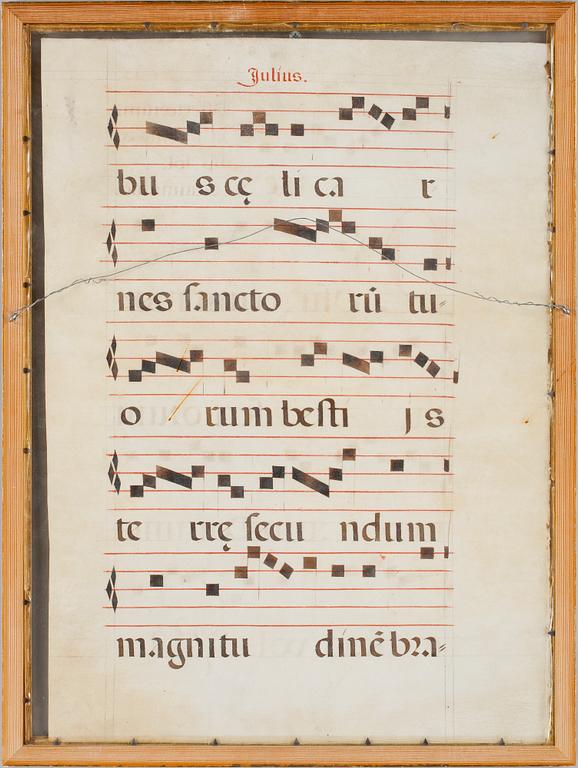 Julius.
bu s cę li ca r
nes sancto rū tu-
o rum besti j s
te rrę secu ndum
magnitu dinē bra-